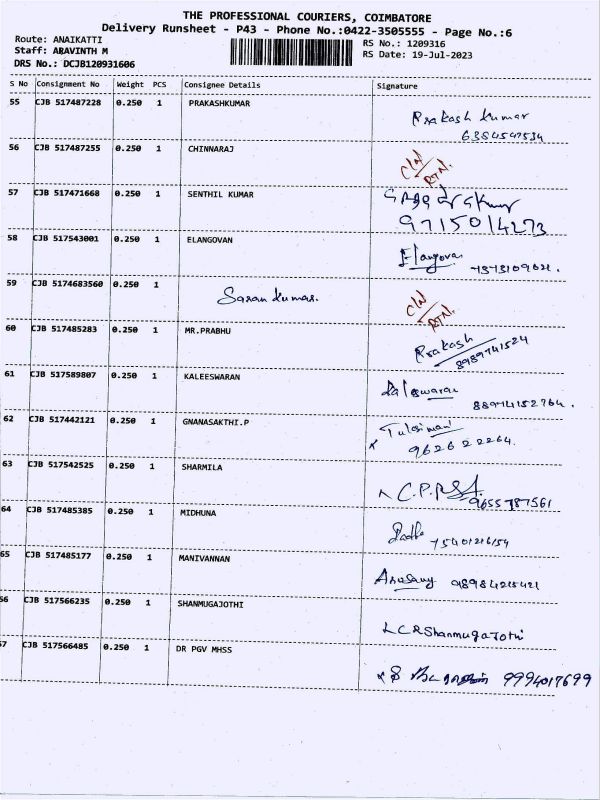 THE PROFESSIONAL COURIERS, COIMBATORE
Delivery Runsheet - P43 - Phone No.:0422-3505555 - Page No.:6
Route: ANAIKATTI
Staff: ARAVINTH M
DRS No.: DCJB120931606
RS No.: 1209316
RS Date: 19-Jul-2023
S No Consignment No Weight PCS Consignee Details Signature
55 CJB 517487228 0.250 1 PRAKASHKUMAR Prakash Kumar
56 CJB 517487255 0.250 1 CHINNARAJ C/N/RTN.
57 CJB 517471668 0.250 1 SENTHIL KUMAR
9715014273
58 CJB 517543001 0.250 1 ELANGOVAN Elangovan
59 CJB 5174683560 0.250 1 Saran kumar. C/N/RTN.
60 CJB 517485283 0.250 1 MR.PRABHU Prakash
8989741524
61 CJB 517589807 0.250 1 KALEESWARAN Kaleswaran
62 CJB 517442121 0.250 1 GNANASAKTHI.P Tulasimani
63 CJB 517542525 0.250 1 SHARMILA
9655787561
64 CJB 517485385 0.250 1 MIDHUNA
65 CJB 517485177 0.250 1 MANIVANNAN
66 CJB 517566235 0.250 1 SHANMUGAJOTHI L C R Shanmugajothi
67 CJB 517566485 0.250 1 DR PGV MHSS 9994017699